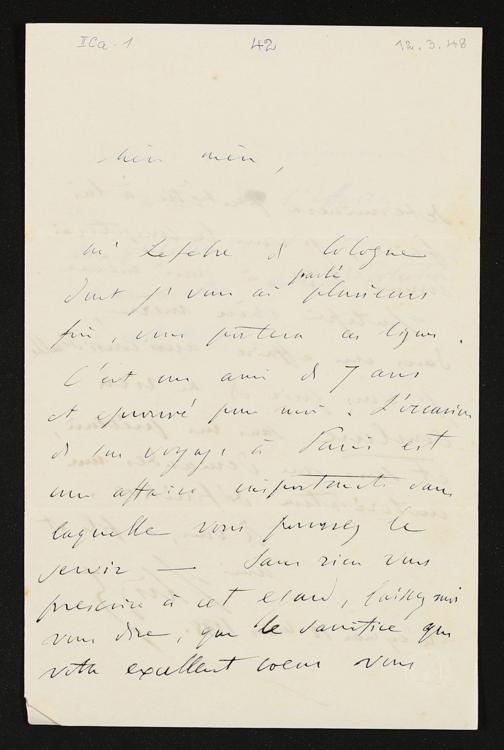 II Ca - 1
42
12.3.48
Chère mère,
Mr Lefebre de Cologne
dont je vous ai parlé plusieurs
fois, vous portera ces lignes.
C'est un ami de 7 ans
et éprouvé pour moi. L'occasion
de son voyage à Paris est
une affaire importante dans
laquelle vous pouvez le
servir — Sans rien vous
prescrire à cet égard, laissez moi
vous dire, que le sacrifice que
votre excellent coeur vous